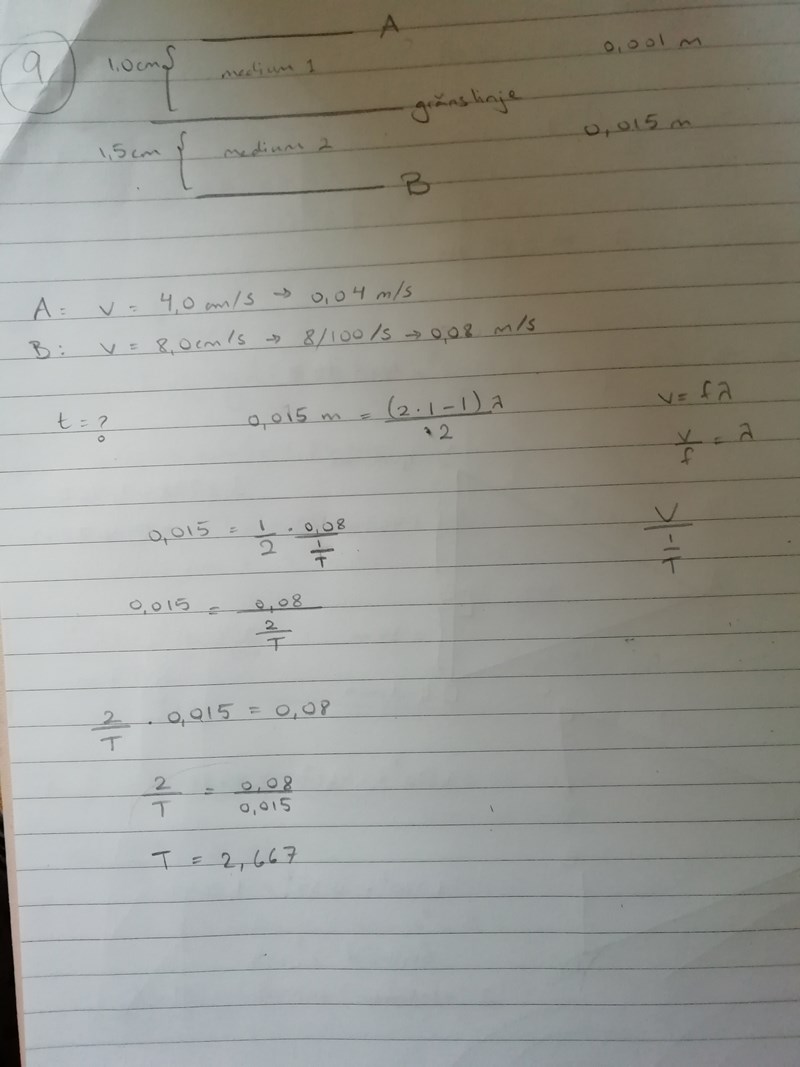 A
9 1,0cm { medium 1 0,001 m
gränslinje
1,5cm { medium 2 0,015 m
B
A: v = 4,0 cm/s → 0,04 m/s
B: v = 8,0cm/s → 8/100/s → 0,08 m/s
t = ? 0,015 m = (2·1-1)λ/2 v = fλ
v/f = λ
0,015 = 1/2 · 0,08/(1/T) v/(1/T)
0,015 = 0,08/(2/T)
2/T · 0,015 = 0,08
2/T = 0,08/0,015
T = 2,667